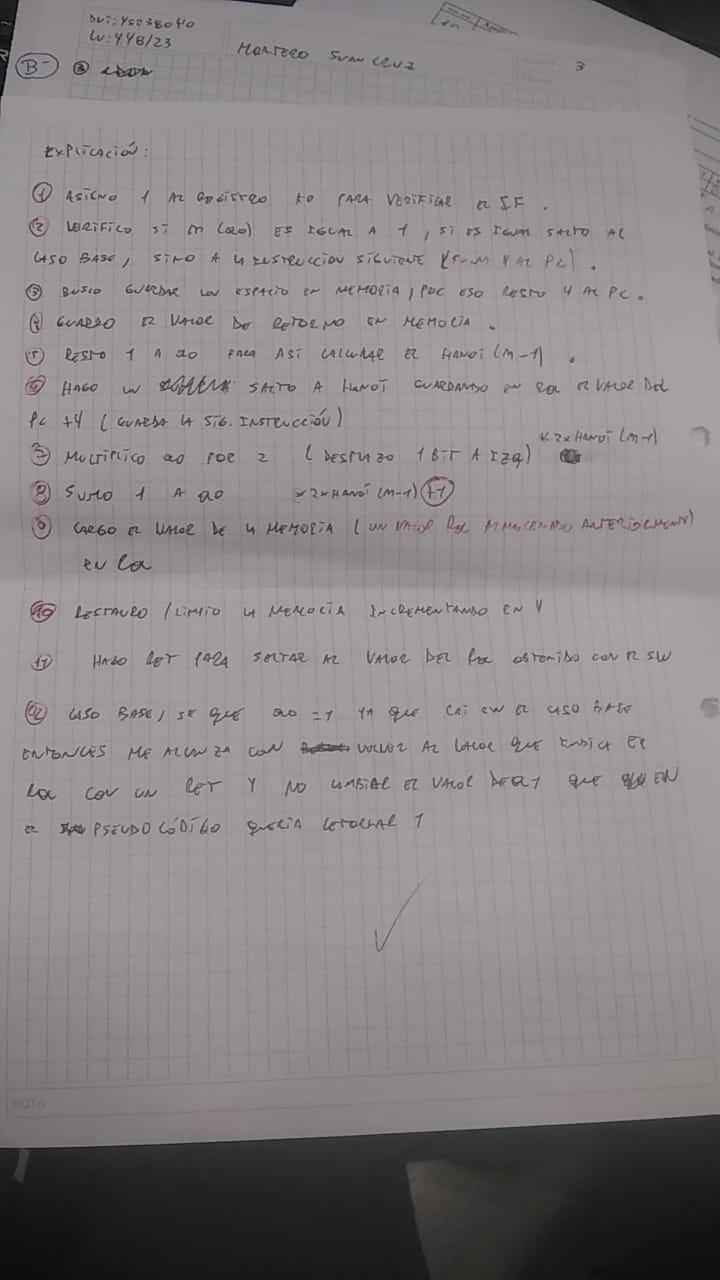 DNI: 45038040
LU: 448/23
MONTERO JUAN CRUZ
3
B-
3
EXPLICACIÓN:
1 ASIGNO 1 AL REGISTRO t0 PARA VERIFICAR EL IF.
2 VERIFICO SI M (a0) ES IGUAL A 1, SI ES IGUAL SALTO AL
CASO BASE, SINO A LA INSTRUCCION SIGUIENTE (SUMA 4 AL PC).
3 BUSCO GUARDAR UN ESPACIO EN MEMORIA, POR ESO RESTO 4 AL PC.
4 GUARDO EL VALOR DE RETORNO EN MEMORIA.
5 RESTO 1 A a0 PARA ASI CALCULAR EL HANOI (M-1).
6 HAGO UN SALTO A HANOI GUARDANDO EN RA EL VALOR DEL
PC +4 (GUARDA LA SIG. INSTRUCCIÓN)
7 MULTIPLICO a0 POR 2 (DESPLAZO 1 BIT A IZQ) * 2xHANOI (M-1)
8 SUMO 1 A a0 * 2xHANOI (M-1) +1
9 CARGO EL VALOR DE LA MEMORIA (UN VALOR RA ALMACENADO ANTERIORMENTE)
EN RA
10 RESTAURO / LIMPIO LA MEMORIA INCREMENTANDO EN 4
11 HAGO RET PARA SALTAR AL VALOR DEL RA OBTENIDO CON EL SW
12 CASO BASE, SE QUE a0 = 1 YA QUE CAI EN EL CASO BASE
ENTONCES ME ALCANZA CON VOLVER AL VALOR QUE INDICA EL
RA CON UN RET Y NO CAMBIAR EL VALOR DE QUE EN
EL PSEUDO CÓDIGO QUERIA RETORNAR 1
NOTA